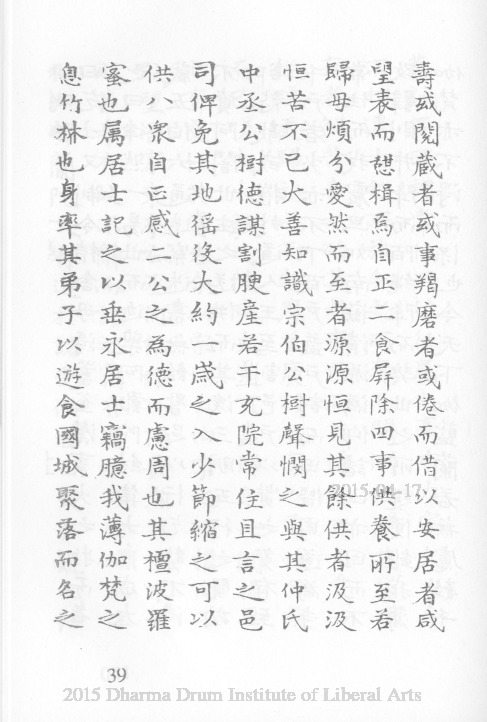 壽或閱藏者或事羯磨者或倦而借以安居者咸
望表而憇楫焉自正二食屏除四事供養所至若
歸母煩分愛然而至者源源恒見其餘供者汲汲
恒苦不已大善知識宗伯公樹聲憫之與其仲氏
中丞公樹德謀割腴產若干充院常住且言之邑
司俾免其地徭役大約一歲之入少節縮之可以
供八眾自正感二公之為德而慮周也其檀波羅
蜜也属居士記之以垂永居士竊臆我薄伽梵之
息竹林也身率其弟子以遊食國城聚落而名之
2015-04-17
39
2015 Dharma Drum Institute of Liberal Arts